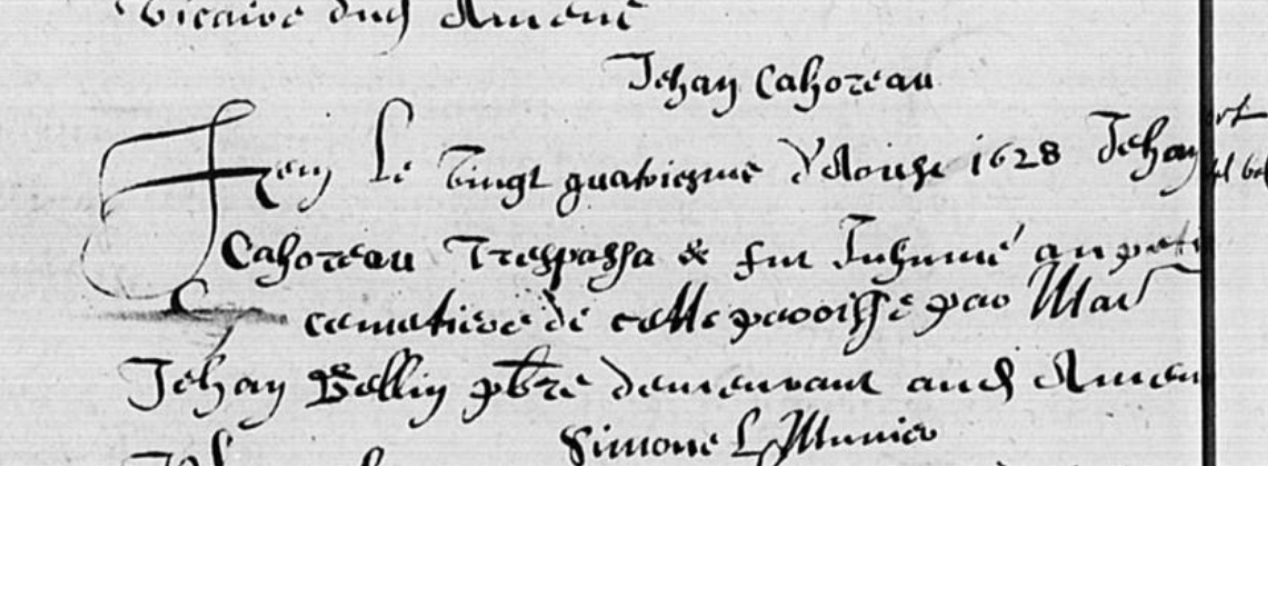 vicaire dud Amené
Jehan Cahoreau
Item Le vingt quatriesme d'Aoust 1628 Jehan
Cahoreau Trespassa & fut Inhumé au petit
cemetiere de celle paroisse par Mai
Jehan Bellin pbre demeurant aud Amen
Simone L Munier